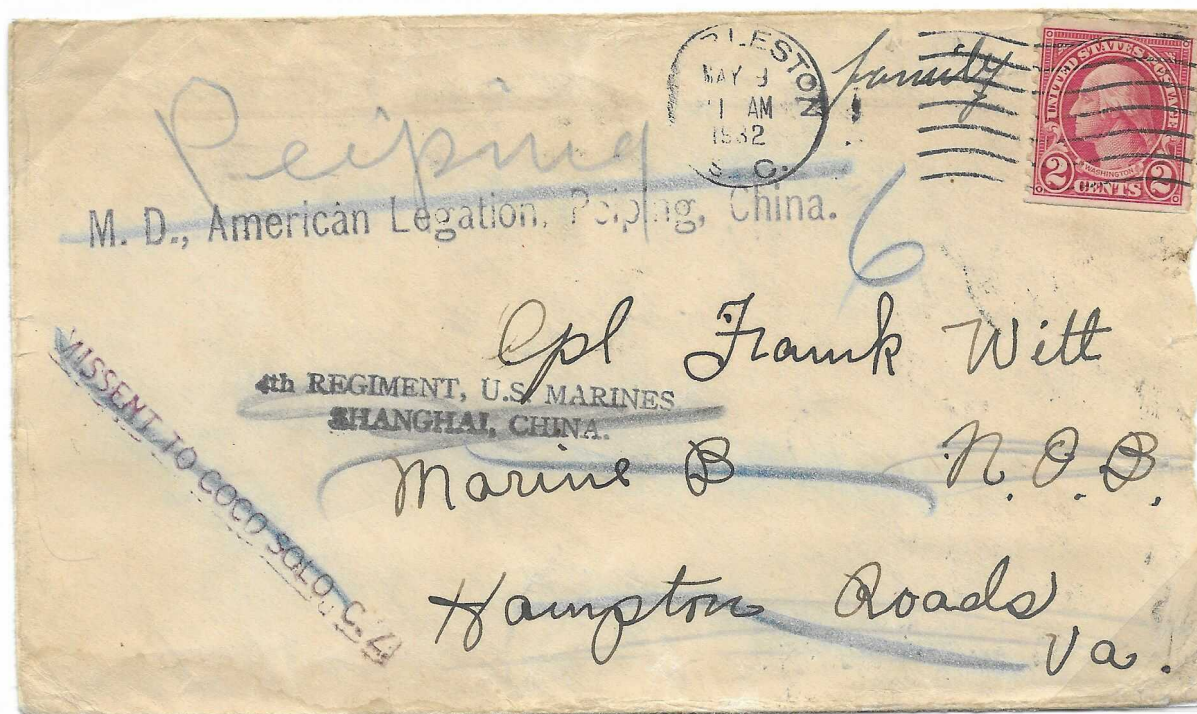 LESTON
MAY 9
1 AM
1932
S. C.
family
UNITED STATES POSTAGE
WASHINGTON
2 CENTS 2
Peiping
M. D., American Legation, Peiping, China.
6
Cpl Frank Witt
4th REGIMENT, U.S. MARINES
SHANGHAI, CHINA.
Marine B N.O.B.
MISSENT TO COCO SOLO, C. Z.
Hampton Roads
Va.